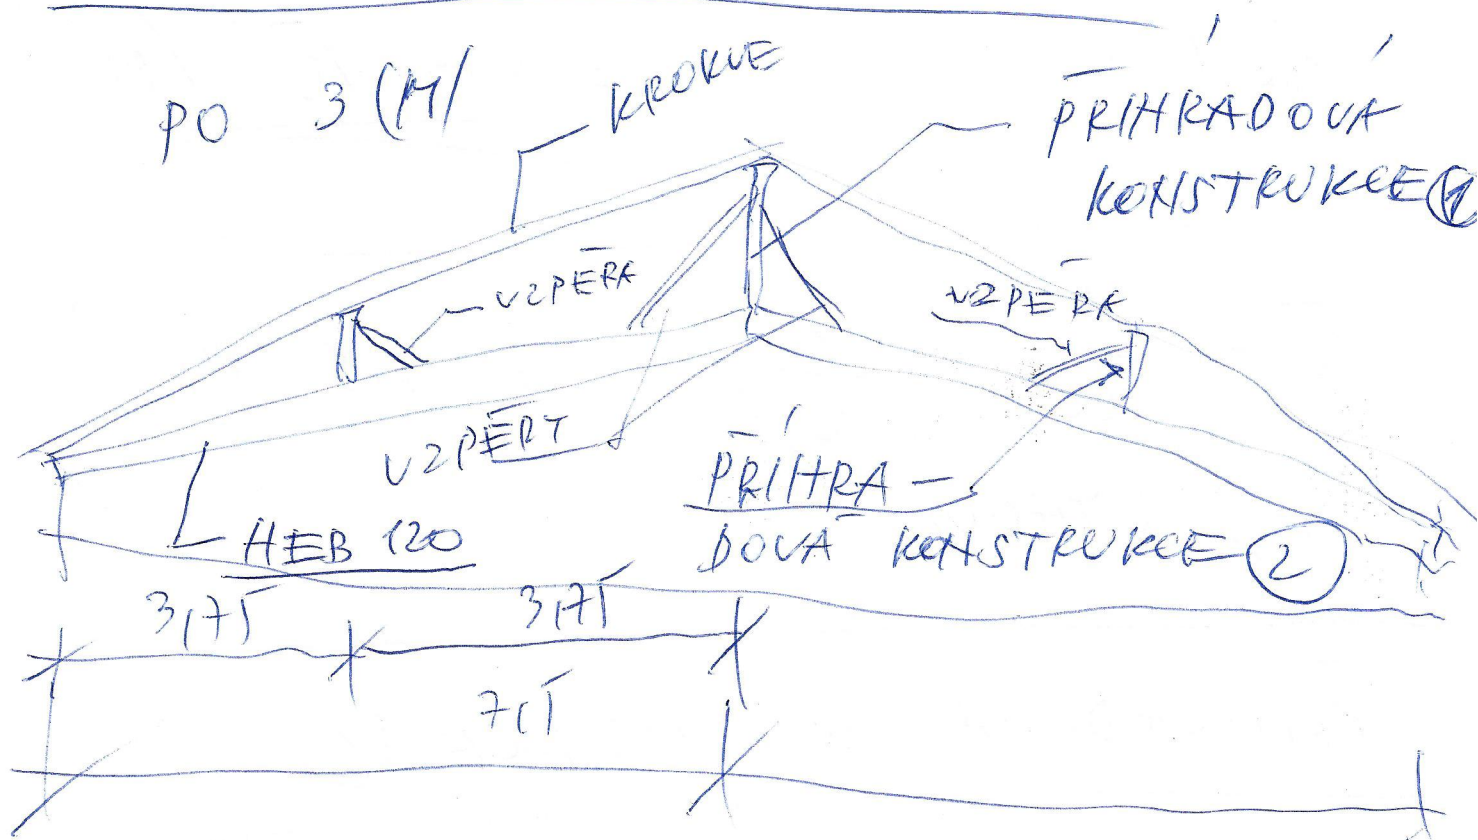 PO 3 (M)
KROKVE
PŘÍHRADOVÁ
KONSTRUKCE 1
VZPĚRA
VZPĚRA
VZPĚRY
PŘÍHRA-
DOVÁ KONSTRUKCE 2
HEB 120
3,75
3,75
7,5